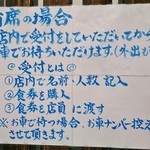 満席の場合
店内で受付をしていただいてか
お車でお待ちいただけます(外出
@受付とは@
①店内で名前・人数 記入
②食券を購入
③食券を店員に渡す
※お車で待つ場合、お車ナンバー控え
させて頂きます。